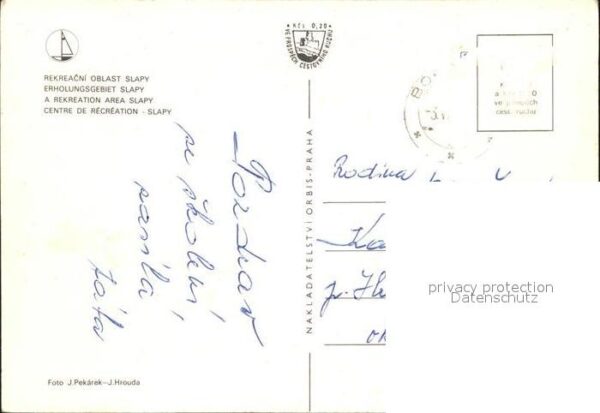 REKREAČNÍ OBLAST SLAPY
ERHOLUNGSGEBIET SLAPY
A REKREATION AREA SLAPY
CENTRE DE RÉCRÉATION - SLAPY
Kčs 0,20
VE PROSPĚCH CESTOVNÍHO RUCHU
ve prospěch
cest. ruchu
Pozdrav
ze školení
zasílá
táta
NAKLADATELSTVÍ ORBIS-PRAHA
Rodina
privacy protection
Datenschutz
Foto J.Pekárek-J.Hrouda